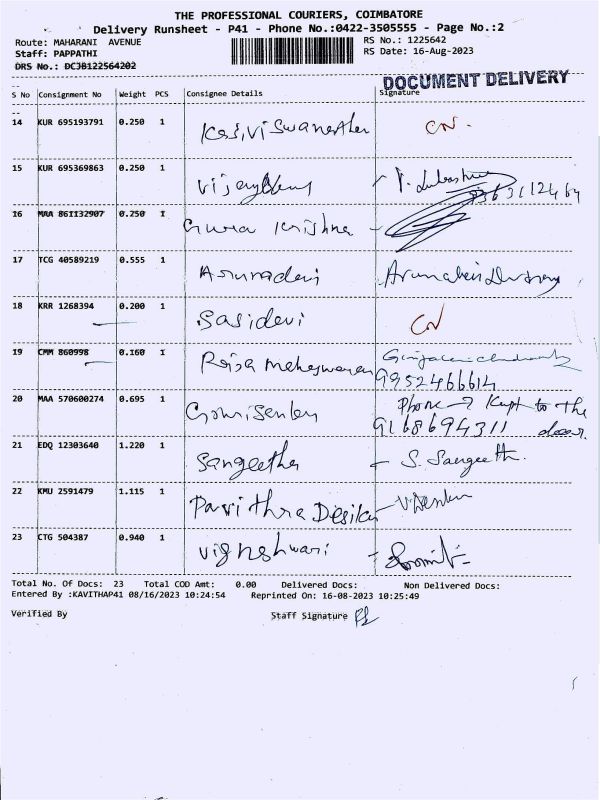 THE PROFESSIONAL COURIERS, COIMBATORE
Delivery Runsheet - P41 - Phone No.:0422-3505555 - Page No.:2
Route: MAHARANI AVENUE
RS No.: 1225642
Staff: PAPPATHI
RS Date: 16-Aug-2023
DRS No.: DCJB122564202
DOCUMENT DELIVERY
S No Consignment No Weight PCS Consignee Details Signature
14 KUR 695193791 0.250 1 CN.
15 KUR 695369863 0.250 1
16 MAA 861132907 0.250 1 Guru Krishna
17 TCG 40589219 0.555 1 Arunadevi
18 KRR 1268394 0.200 1 Sasidevi CN
19 CMM 860998 0.160 1 Roisa Maheswaran
9952466614
20 MAA 570600274 0.695 1 Gowrisenkar Phone → Kept to the
9168694311 door.
21 EDQ 12303640 1.220 1 Sangeetha - S. Sangeetha.
22 KMU 2591479 1.115 1 Pavithra Desikan
23 CTG 504387 0.940 1 Vigneshwari
Total No. Of Docs: 23 Total COD Amt: 0.00 Delivered Docs: Non Delivered Docs:
Entered By :KAVITHAP41 08/16/2023 10:24:54 Reprinted On: 16-08-2023 10:25:49
Verified By Staff Signature